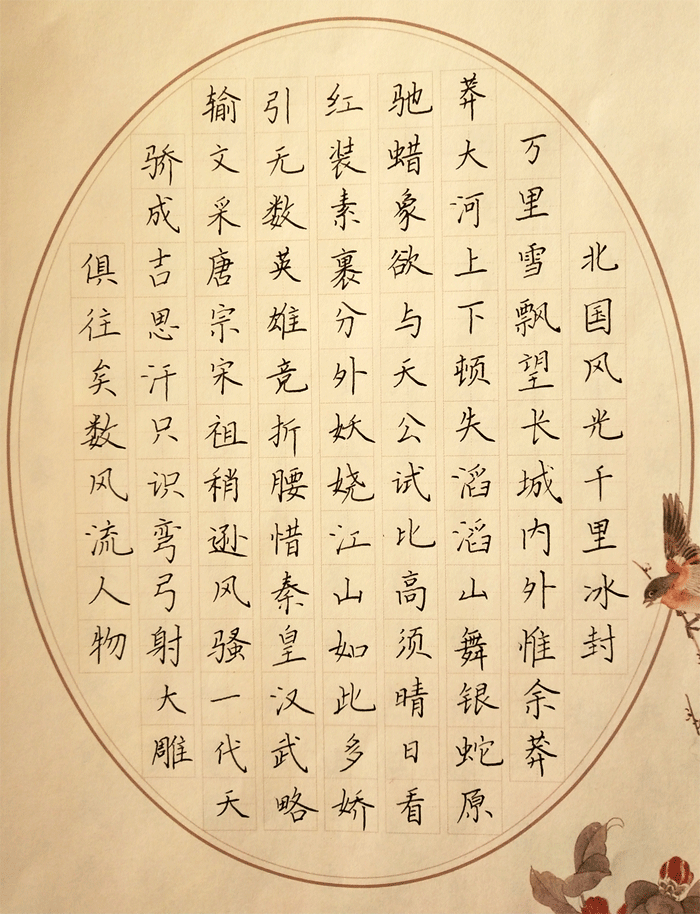 北国风光千里冰封
万里雪飘望长城内外惟余莽
莽大河上下顿失滔滔山舞银蛇原
驰蜡象欲与天公试比高须晴日看
红装素裹分外妖娆江山如此多娇
引无数英雄竞折腰惜秦皇汉武略
输文采唐宗宋祖稍逊风骚一代天
骄成吉思汗只识弯弓射大雕
俱往矣数风流人物